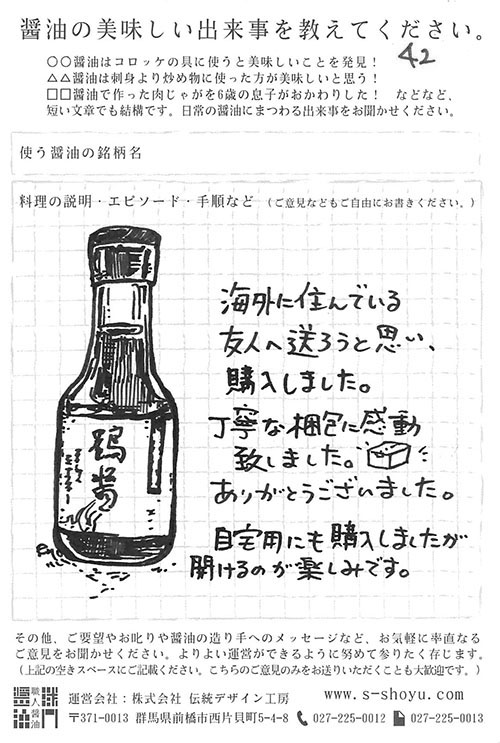 醤油の美味しい出来事を教えてください。
42
○○醤油はコロッケの具に使うと美味しいことを発見！
△△醤油は刺身より炒め物に使った方が美味しいと思う！
□□醤油で作った肉じゃがを6歳の息子がおかわりした！　などなど、
短い文章でも結構です。日常の醤油にまつわる出来事をお聞かせください。
使う醤油の銘柄名
料理の説明・エピソード・手順など（ご意見などもご自由にお書きください。）
海外に住んでいる
友人へ送ろうと思い、
購入しました。
丁寧な梱包に感動
致しました。
ありがとうございました。
自宅用にも購入しましたが
開けるのが楽しみです。
鶴醤
その他、ご要望やお叱りや醤油の造り手へのメッセージなど、お気軽に率直なる
ご意見をお聞かせください。よりよい運営ができるように努めて参りたく存じます。
（上記の空きスペースにご記載ください。こちらのご意見のみをお送りいただくことも大歓迎です。）
職人醤油
運営会社：株式会社 伝統デザイン工房
www.s-shoyu.com
〒371-0013 群馬県前橋市西片貝町5-4-8
027-225-0012
027-225-0013